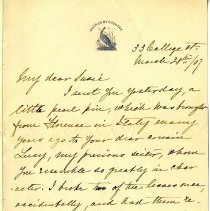 33 College St.
March 28th/07
My dear Susie
I sent you yesterday, a
little pearl pin, which was brought
from Florence in Italy many
years ago to your dear cousin
Lucy, my precious sister, whom
you resemble so greatly in char
acter. I broke two of the
accidentally, and had them re